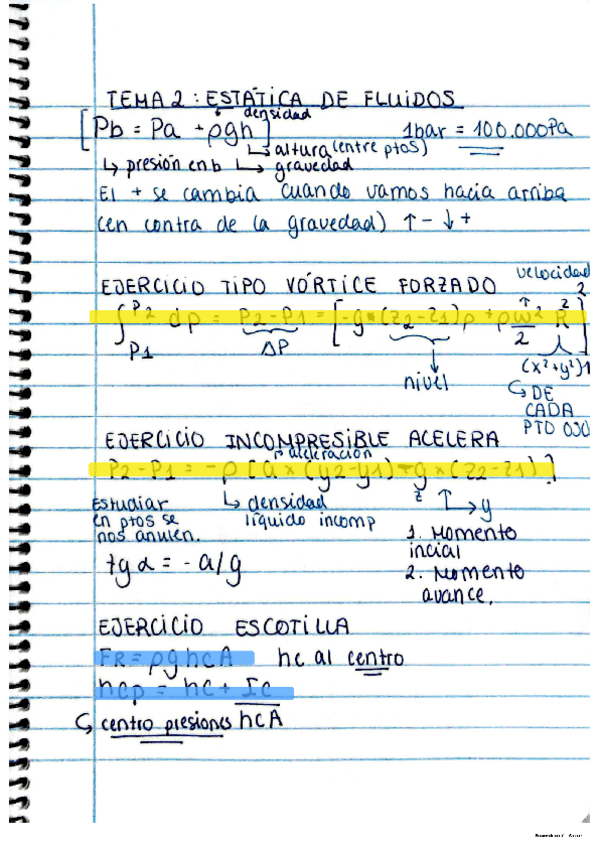 TEMA 2: ESTÁTICA DE FLUIDOS
densidad
[Pb = Pa + ρgh] 1bar = 100.000Pa
altura (entre ptos)
↳ presión en b ↳ gravedad
El + se cambia cuando vamos hacia arriba
(en contra de la gravedad) ↑ - ↓ +
EJERCICIO TIPO VÓRTICE FORZADO velocidad
∫ P2 P1 dp = P2 - P1 = [-g * (z2 - z1) ρ + ρ ω² / 2 R²] 2 1
ΔP
nivel
(x²+y²)
↳ DE
CADA
PTO OJO
EJERCICIO INCOMPRESIBLE ACELERA
aceleración
P2 - P1 = -ρ [a * (y2 - y1) + g * (z2 - z1)]
Estudiar
en ptos se
nos anulen.
↳ densidad
líquido incomp
z ↑ → y
1. Momento
incial
2. Momento
avance.
tg α = - a/g
EJERCICIO ESCOTILLA
FR = ρghcA hc al centro
hcp = hc + Ic
↳ centro presiones hcA